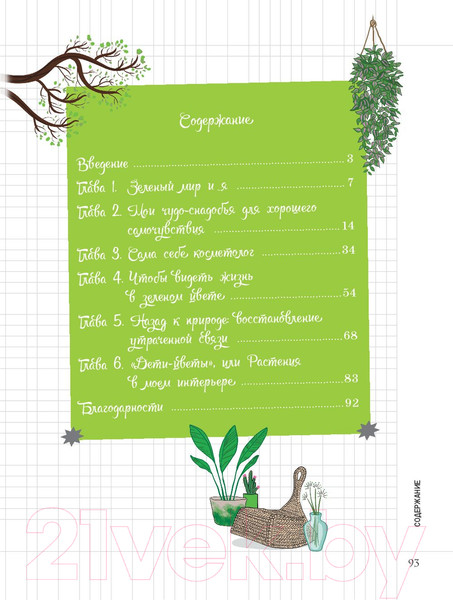 Содержание
Введение 3
Глава 1. Зеленый мир и я 7
Глава 2. Мои чудо-снадобья для хорошего
самочувствия 14
Глава 3. Сама себе косметолог 34
Глава 4. Чтобы видеть жизнь
в зеленом цвете 54
Глава 5. Назад к природе: восстановление
утраченной связи 68
Глава 6. «Дети-цветы», или Растения
в моем интерьере 83
Благодарности 92
СОДЕРЖАНИЕ
93
21vek.by